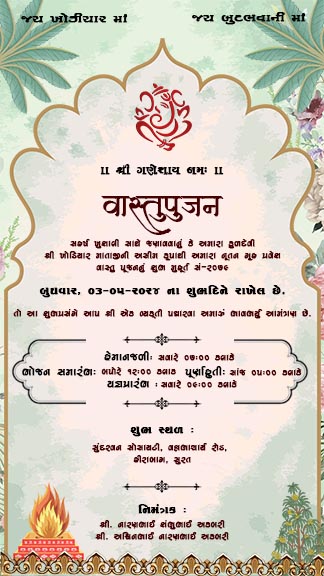 જય ખોડીયાર માં
જય બુટભવાની માં
॥ શ્રી ગણેશાય નમઃ ॥
વાસ્તુપુજન
સહર્ષ ખુશાલી સાથે જણાવવાનું કે અમારા કુળદેવી
શ્રી ખોડિયાર માતાજીની અસીમ કૃપાથી અમારા નૂતન ગૃહ પ્રવેશ
વાસ્તુ પૂજનનું શુભ મુહૂર્ત સં-૨૦૭૯
બુધવાર, ૦૩-૦૫-૨૦૨૪ ના શુભદિને રાખેલ છે.
તો આ શુભપ્રસંગે આપ શ્રી એક વ્યકતી પધારવા અમારું ભાવભર્યું આમંત્રણ છે.
હેમાનજળી: સવારે ૦૭:૦૦ કલાકે
ભોજન સમારંભ: બપોરે ૧૨:૦૦ કલાકે પૂર્ણાહુતિ: સાંજ ૦૫:૦૦ કલાકે
યજ્ઞપ્રારંભ : સવારે ૦૬:૦૦ કલાકે
શુભ સ્થળ :
સુંદરવન સોસાયટી, વલ્લભાચાર્ય રોડ,
હીરાબાગ, સુરત
નિમંત્રક :
શ્રી. નારણભાઈ શંભુભાઈ અકબરી
શ્રી. અશ્વિનભાઈ નારણભાઈ અકબરી